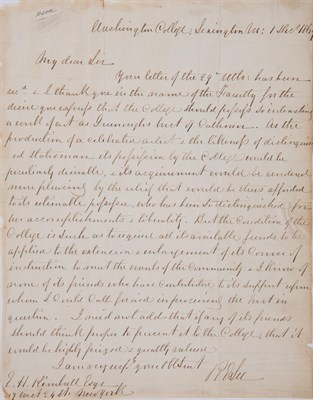 Washington College, Lexington Va: 1 Dec 186
My dear Sir
Your letter of the 29th Ulto: has been
recd & I thank you in the name of the Faculty for the
desire you express that the College should possess so interesting
a work of art as Dunning's bust of Calhoun. As the
production of a celebrated artist & the likeness of distinguish
ed Statesman its possession by the College would be
peculiarly desirable, & its acquirement would be rendered
more pleasing by the relief that would be thus afforded
to its estimable possessor, who has been so distinguished for
her accomplishments & liberality. But the Condition of the
College is Such as to require all its available funds to be
applied to the extension & enlargement of its Course of
instruction to meet the wants of the Community & I know of
none of its friends who have contributed to its support upon
whom I could Call for aid in procuring the bust in
question. I need not add that if any of its friends
should think proper to present it to the College, that it
would be highly prized & greatly valued
I am very respy your obt Servt
R E Lee
E. H. Kimball Esqr
17 West 24 St. New York